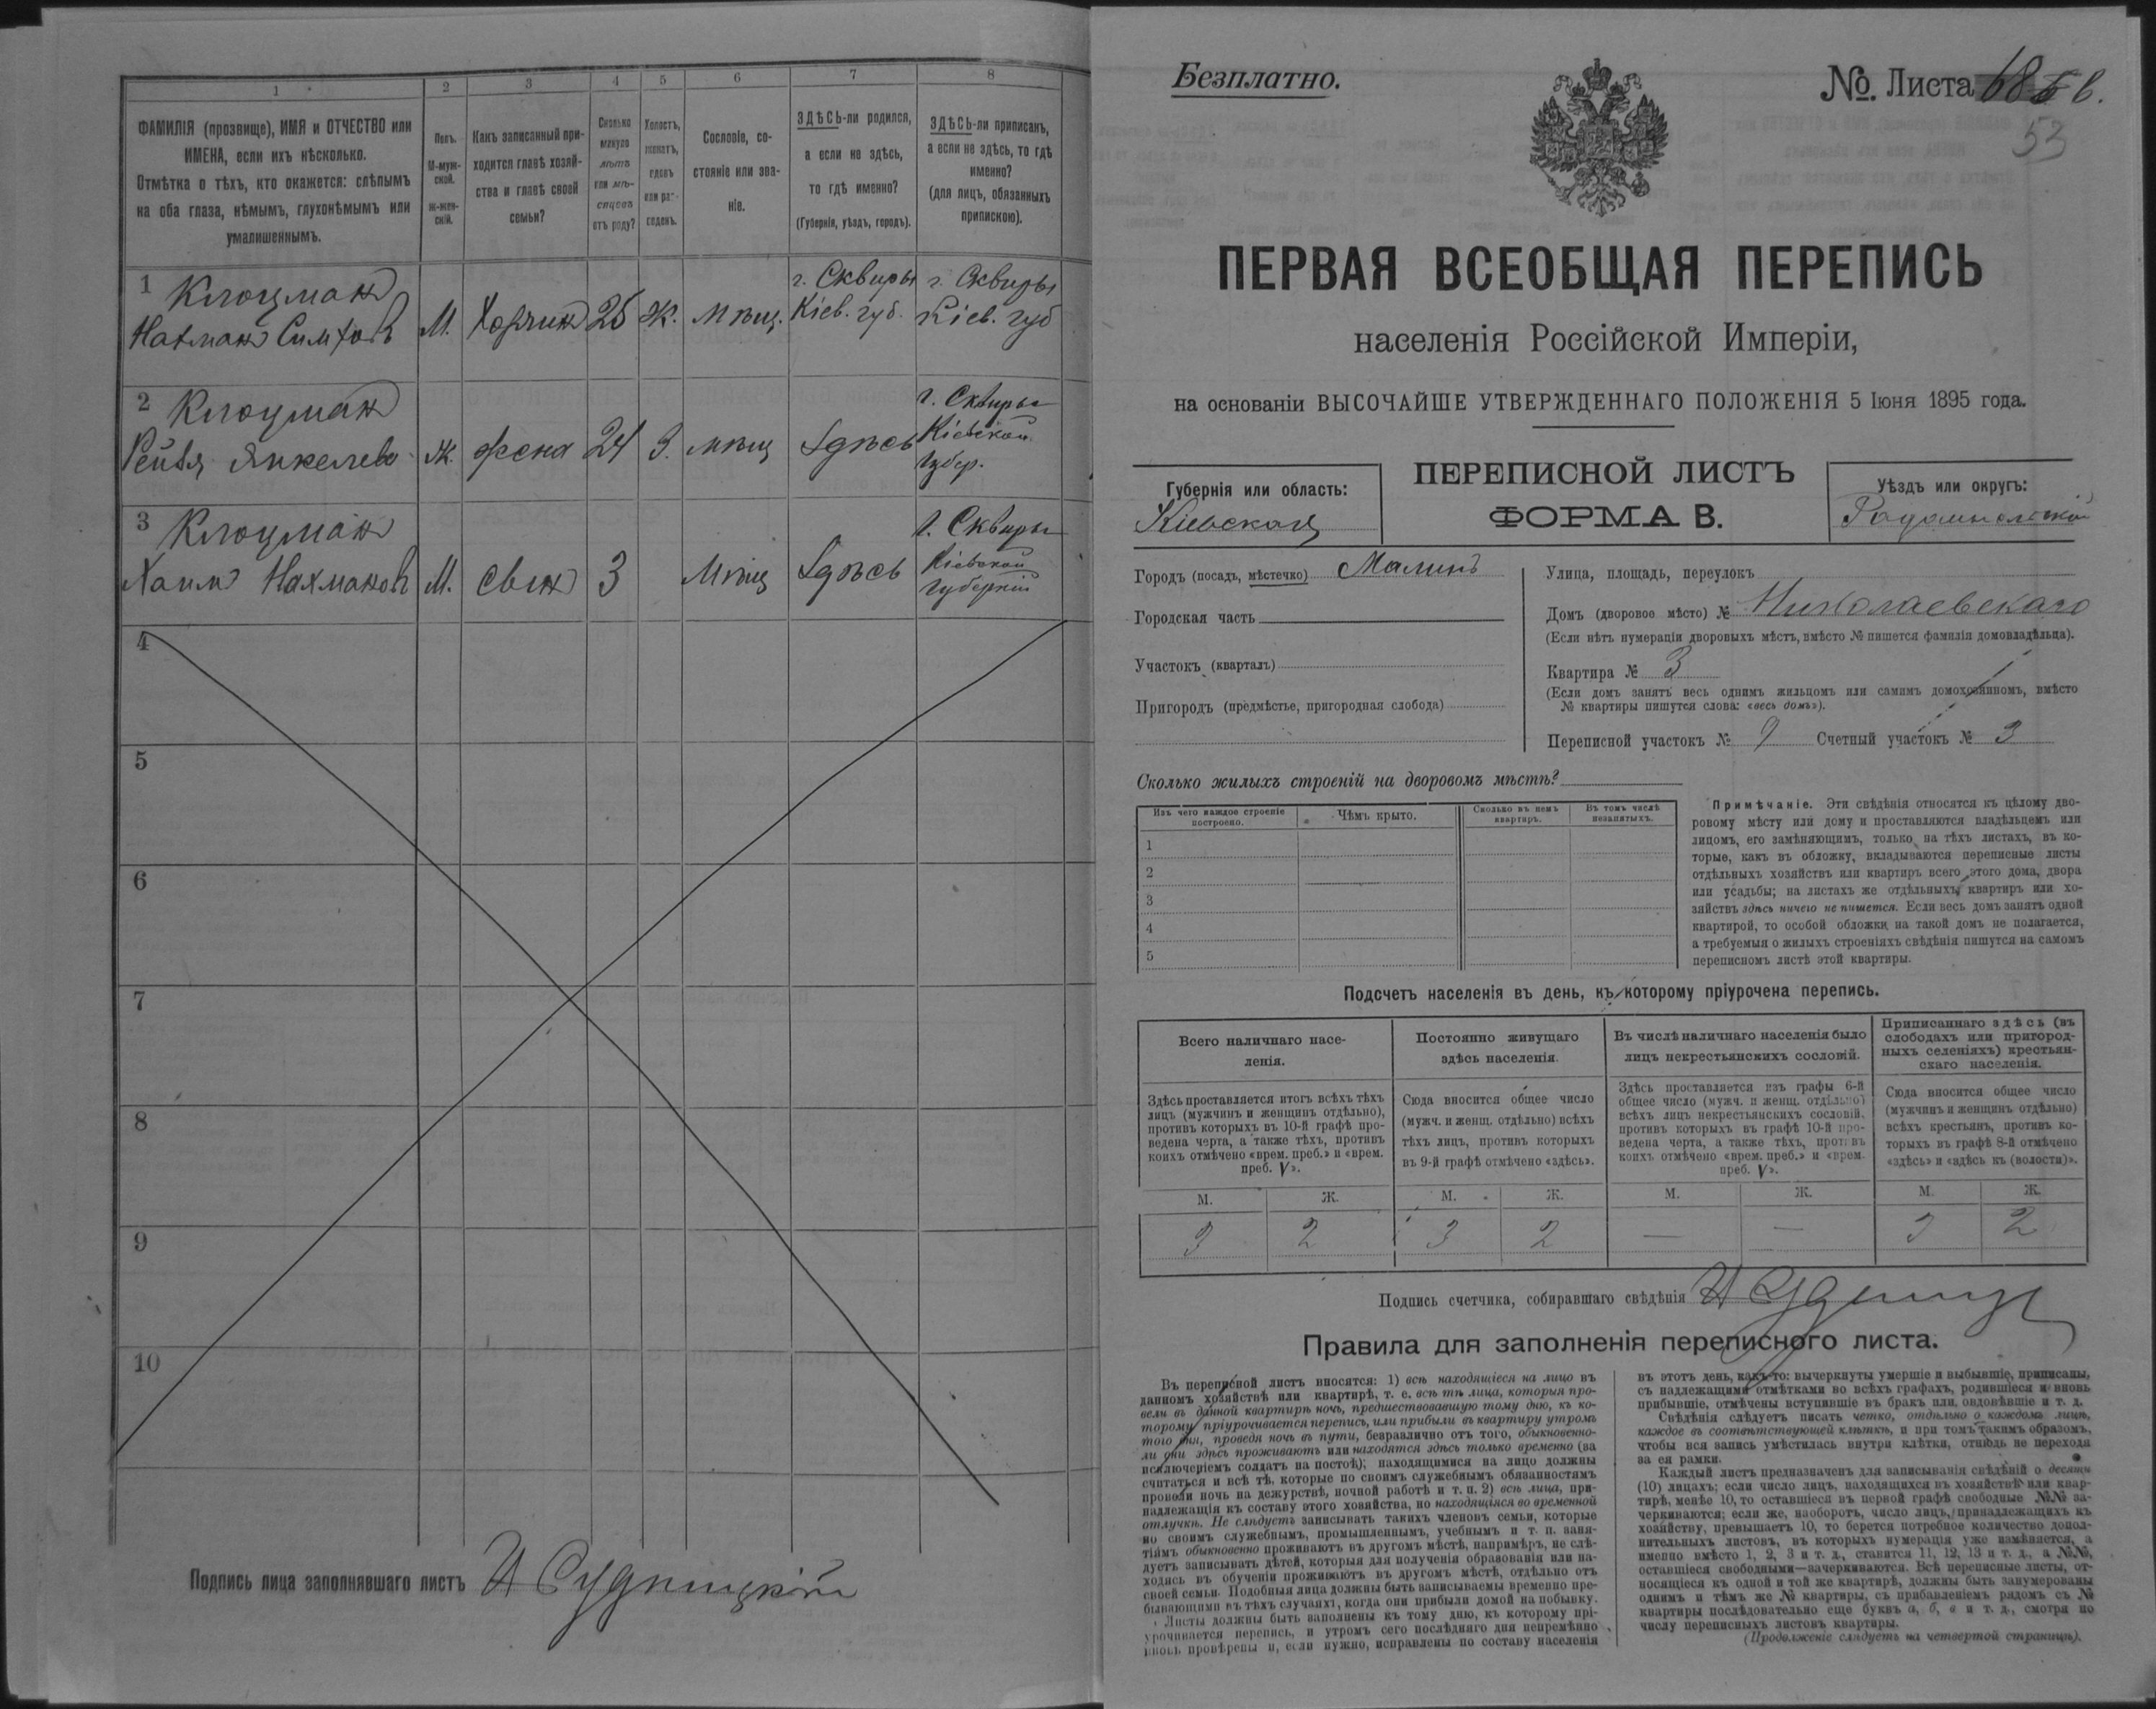 1
2
3
4
5
6
7
8
ФАМИЛІЯ (прозвище), ИМЯ и ОТЧЕСТВО или
ИМЕНА, если ихъ нѣсколько.
Отмѣтка о тѣхъ, кто окажется: слѣпымъ
на оба глаза, нѣмымъ, глухонѣмымъ или
умалишеннымъ.
Полъ.
М-муж-
ской.
Ж-жен-
скій.
Какъ записанный при-
ходится главѣ хозяй-
ства и главѣ своей
семьи?
Сколько
минуло
лѣтъ
или мѣ-
сяцевъ
отъ роду?
Холостъ,
женатъ,
вдовъ
или раз-
веденъ.
Сословіе, со-
стояніе или зва-
ніе.
ЗДѢСЬ-ли родился,
а если не здѣсь,
то гдѣ именно?
(Губернія, уѣздъ, городъ).
ЗДѢСЬ-ли приписанъ,
а если не здѣсь, то гдѣ
именно?
(для лицъ, обязанныхъ
припискою).
1 Клоцман
Нахман Симхов
М.
Хозяин
25
Ж.
мѣщ.
г. Сквиры
Кіев. губ.
г. Сквиры
Кіев. губ
2 Клоцман
Рейзя Янкелева
Ж.
жена
24
З.
мѣщ
Здѣсь
г. Сквиры
Кіевской
губер.
3 Клоцман
Хаим Нахманов
М.
сын
3
Мѣщ
Здѣсь
г. Сквиры
Кіевской
губерніи
4
5
6
7
8
9
10
Подпись лица заполнявшаго листъ И Судницкій
Безплатно.
№ Листа 68 в.
53
ПЕРВАЯ ВСЕОБЩАЯ ПЕРЕПИСЬ
населенія Россійской Имперіи,
на основаніи ВЫСОЧАЙШЕ УТВЕРЖДЕННАГО ПОЛОЖЕНІЯ 5 Іюня 1895 года.
Губернія или область:
Кіевская
ПЕРЕПИСНОЙ ЛИСТЪ
ФОРМА В.
Уѣздъ или округъ:
Радомысльскій
Городъ (посадъ, мѣстечко) Малинъ
Городская часть
Участокъ (кварталъ)
Пригородъ (предмѣстье, пригородная слобода)
Улица, площадь, переулокъ
Домъ (дворовое мѣсто) № Николаевскаго
(Если нѣтъ нумераціи дворовыхъ мѣстъ, вмѣсто № пишется фамилія домовладѣльца).
Квартира № 3
(Если домъ занятъ весь однимъ жильцомъ или самимъ домохозяиномъ, вмѣсто
№ квартиры пишутся слова: «весь домъ»).
Переписной участокъ № 9 Счетный участокъ № 3
Сколько жилыхъ строеній на дворовомъ мѣстѣ?
Изъ чего каждое строеніе
построено.
Чѣмъ крыто.
Сколько въ немъ
квартиръ.
Въ томъ числѣ
незанятыхъ.
1
2
3
4
5
Примѣчаніе. Эти свѣдѣнія относятся къ цѣлому дво-
ровому мѣсту или дому и проставляются владѣльцемъ или
лицомъ, его замѣняющимъ, только на тѣхъ листахъ, въ ко-
торые, какъ въ обложку, вкладываются переписные листы
отдѣльныхъ хозяйствъ или квартиръ всего этого дома, двора
или усадьбы; на листахъ же отдѣльныхъ квартиръ или хо-
зяйствъ здѣсь ничего не пишется. Если весь домъ занятъ одной
квартирой, то особой обложки на такой домъ не полагается,
а требуемыя о жилыхъ строеніяхъ свѣдѣнія пишутся на самомъ
переписномъ листѣ этой квартиры.
Подсчетъ населенія въ день, къ которому пріурочена перепись.
Всего наличнаго насе-
ленія.
Постоянно живущаго
здѣсь населенія.
Въ числѣ наличнаго населенія было
лицъ некрестьянскихъ сословій.
Приписаннаго здѣсь (въ
слободахъ или пригород-
ныхъ селеніяхъ) крестьян-
скаго населенія.
Здѣсь проставляется итогъ всѣхъ тѣхъ
лицъ (мужчинъ и женщинъ отдѣльно),
противъ которыхъ въ 10-й графѣ про-
ведена черта, а также тѣхъ, противъ
коихъ отмѣчено «врем. преб.» и «врем.
преб. V».
Сюда вносится общее число
(мужч. и женщ. отдѣльно) всѣхъ
тѣхъ лицъ, противъ которыхъ
въ 9-й графѣ отмѣчено «здѣсь».
Здѣсь проставляется изъ графы 6-й
общее число (мужч. и женщ. отдѣльно)
всѣхъ лицъ некрестьянскихъ сословій,
противъ которыхъ въ графѣ 10-й про-
ведена черта, а также тѣхъ, противъ
коихъ отмѣчено «врем. преб.» и «врем.
преб. V».
Сюда вносится общее число
(мужчинъ и женщинъ отдѣльно)
всѣхъ крестьянъ, противъ ко-
торыхъ въ графѣ 8-й отмѣчено
«здѣсь» и «здѣсь къ (волости)».
М. Ж. М. Ж. М. Ж. М. Ж.
3 2 3 2 — — 3 2
Подпись счетчика, собиравшаго свѣдѣнія
Правила для заполненія переписного листа.
Въ переписной листъ вносятся: 1) всѣ находящіеся на лицо въ
данномъ хозяйствѣ или квартирѣ, т. е. всѣ тѣ лица, которыя про-
вели въ данной квартирѣ ночь, предшествовавшую тому дню, къ ко-
торому пріурочивается перепись, или прибыли въ квартиру утромъ
того дня, проведя ночь въ пути, безразлично отъ того, обыкновенно-
ли они здѣсь проживаютъ или находятся здѣсь только временно (за
исключеніемъ солдатъ на постоѣ); находящимися на лицо должны
считаться и всѣ тѣ, которые по своимъ служебнымъ обязанностямъ
провели ночь на дежурствѣ, ночной работѣ и т. п. 2) всѣ лица, при-
надлежащія къ составу этого хозяйства, но находящіяся во временной
отлучкѣ. Не слѣдуетъ записывать такихъ членовъ семьи, которые
по своимъ служебнымъ, промышленнымъ, учебнымъ и т. п. заня-
тіямъ обыкновенно проживаютъ въ другомъ мѣстѣ, напримѣръ, не слѣ-
дуетъ записывать дѣтей, которыя для полученія образованія или на-
ходясь въ обученіи проживаютъ въ другомъ мѣстѣ, отдѣльно отъ
своей семьи. Подобныя лица должны быть записываемы временно пре-
бывающими въ тѣхъ случаяхъ, когда они прибыли домой на побывку.
Листы должны быть заполнены къ тому дню, къ которому прі-
урочивается перепись, и утромъ сего послѣдняго дня непремѣнно
вновь провѣрены и, если нужно, исправлены по составу населенія
въ этотъ день, какъ-то: вычеркнуты умершіе и выбывшіе, приписаны,
съ надлежащими отмѣтками во всѣхъ графахъ, родившіеся и вновь
прибывшіе, отмѣчены вступившіе въ бракъ или овдовѣвшіе и т. д.
Свѣдѣнія слѣдуетъ писать четко, отдѣльно о каждомъ лицѣ,
каждое въ соотвѣтствующей клѣткѣ, и при томъ такимъ образомъ,
чтобы вся запись умѣстилась внутри клѣтки, отнюдь не переходя
за ея рамки.
Каждый листъ предназначенъ для записыванія свѣдѣній о десяти
(10) лицахъ; если число лицъ, находящихся въ хозяйствѣ или квар-
тирѣ, менѣе 10, то оставшіеся въ первой графѣ свободные №№ за-
черкиваются; если же, наоборотъ, число лицъ, принадлежащихъ къ
хозяйству, превышаетъ 10, то берется потребное количество допол-
нительныхъ листовъ, въ которыхъ нумерація уже измѣняется, а
именно вмѣсто 1, 2, 3 и т. д., ставится 11, 12, 13 и т. д., а №№,
оставшіеся свободными—зачеркиваются. Всѣ переписные листы, от-
носящіеся къ одной и той же квартирѣ, должны быть занумерованы
однимъ и тѣмъ же № квартиры, съ прибавленіемъ рядомъ съ №
квартиры послѣдовательно еще буквъ а, б, в и т. д., смотря по
числу переписныхъ листовъ квартиры.
(Продолженіе слѣдуетъ на четвертой страницѣ).